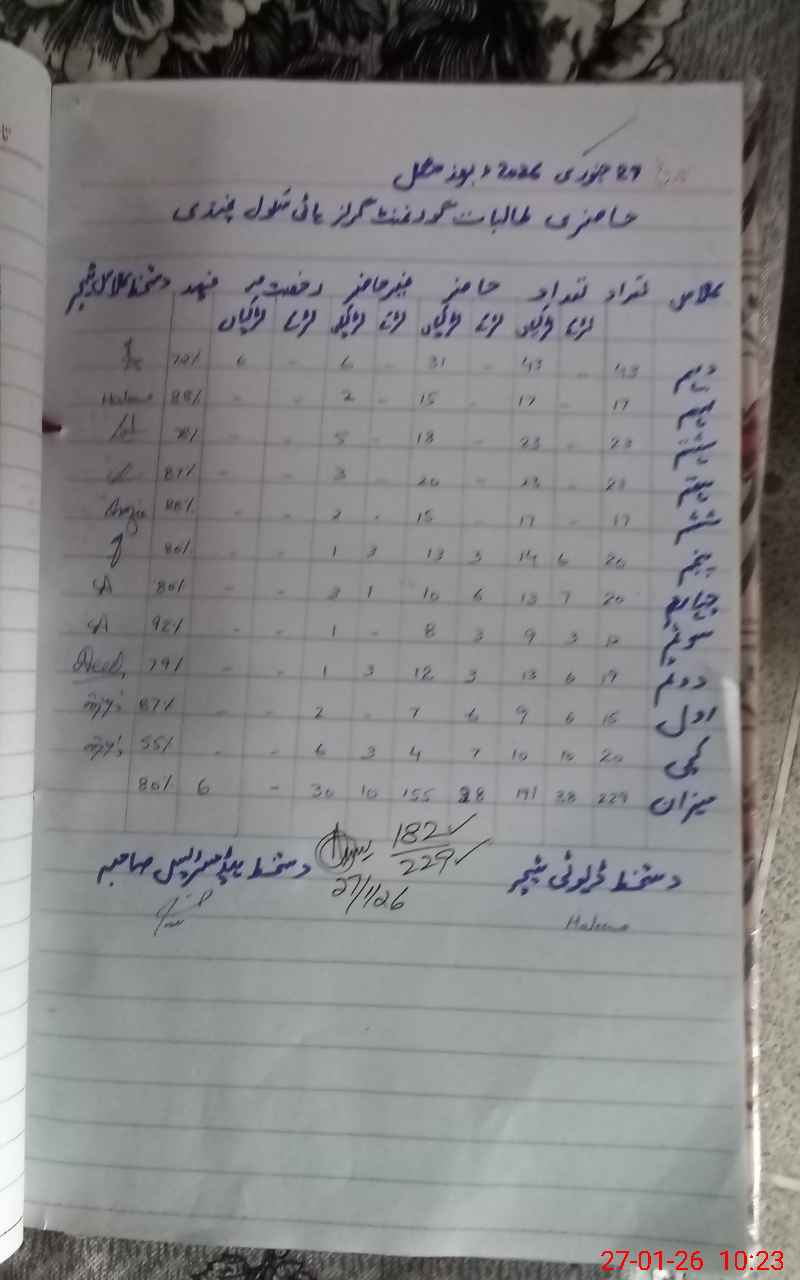 27 جنوری 2026ء بروز منگل
حاضری طالبات گورنمنٹ گرلز ہائی سکول
کلاس تعداد تعداد حاضر غیرحاضر رخصت پر فیصد دستخط کلاس ٹیچر
لڑکے لڑکیاں لڑکے لڑکیاں لڑکے لڑکیاں لڑکے لڑکیاں
دہم 43 - 43 - 31 - 6 - 6 72%
نہم 17 - 17 - 15 - 2 - - 88% Haleema
ہشتم 23 - 23 - 18 - 5 - - 78%
ہفتم 23 - 23 - 20 - 3 - - 87%
ششم 17 - 17 - 15 - 2 - - 88%
پنجم 20 6 14 3 13 3 1 - - 80%
چہارم 20 7 13 6 10 1 3 - - 80%
سوئم 12 3 9 3 8 - 1 - - 92%
دوئم 19 6 13 3 12 3 1 - - 79%
اول 15 6 9 6 7 - 2 - - 87%
کچی 20 10 10 7 4 3 6 - - 55%
میزان 229 38 191 28 155 10 30 - 6 80%
182
229
27/1/26
دستخط ڈیوٹی ٹیچر دستخط ہیڈمسٹریس صاحبہ
Haleema
27-01-26 10:23